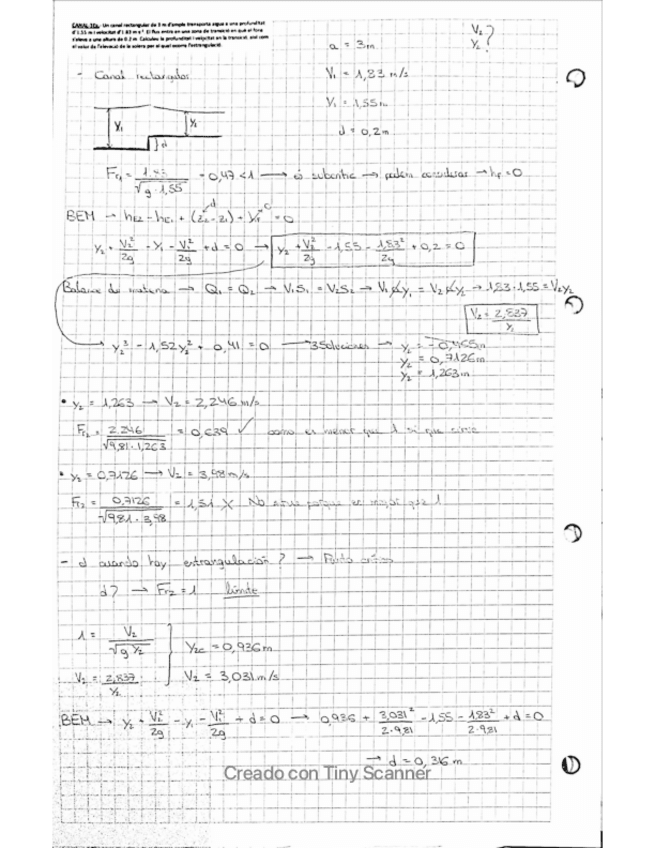 CANAL 10a.- Un canal rectangular de 3 m d'ample transporta aigua a una profunditat
d'1.55 m i velocitat d'1.83 m s⁻¹. El flux entra en una zona de transició en què el fons
s'eleva a una altura de 0.2 m. Calculeu la profunditat i velocitat en la transició, així com
el valor de l'elevació de la solera per al qual ocorre l'estrangulació.
V₂
y₂ ?
a = 3m
- Canal rectangular
V₁ = 1,83 m/s
y₁ = 1,55m
d = 0,2m
y₁ y₂ d
Fr₁ = 1,83 / √(g · 1,55) = 0,47 < 1 → és subcrític → podem considerar → hf = 0
BEM → hE₂ - hE₁ + (z₂ - z₁) + hf = 0
y₂ + V₂²/2g - y₁ - V₁²/2g + d = 0 → y₂ + V₂²/2g - 1,55 - 1,83²/2g + 0,2 = 0
Balance de materia → Q₁ = Q₂ → V₁S₁ = V₂S₂ → V₁ a y₁ = V₂ a y₂ → 1,83 · 1,55 = V₂y₂
V₂ = 2,837 / y₂
y₂³ - 1,52y₂² + 0,41 = 0 → 3 Soluciones → y₂ = -0,455m
y₂ = 0,7126m
y₂ = 1,263m
• y₂ = 1,263 → V₂ = 2,246 m/s
Fr₂ = 2,246 / √(9,81 · 1,263) = 0,639 ✓ como es menor que 1 si que sirve
• y₂ = 0,7126 → V₂ = 3,98 m/s
Fr₂ = 0,7126 / √(9,81 · 3,98) = 1,51 X No sirve porque es major que 1
- d cuando hay estrangulación? → Punto crítico
d? → Fr₂ = 1 límite
1 = V₂ / √(g y₂)
y₂c = 0,936m
V₂ = 2,837 / y₂
V₂ = 3,031 m/s
BEM → y₂ + V₂²/2g - y₁ - V₁²/2g + d = 0 → 0,936 + 3,031²/2·9,81 - 1,55 - 1,83²/2·9,81 + d = 0
→ d = 0,316 m
Creado con Tiny Scanner